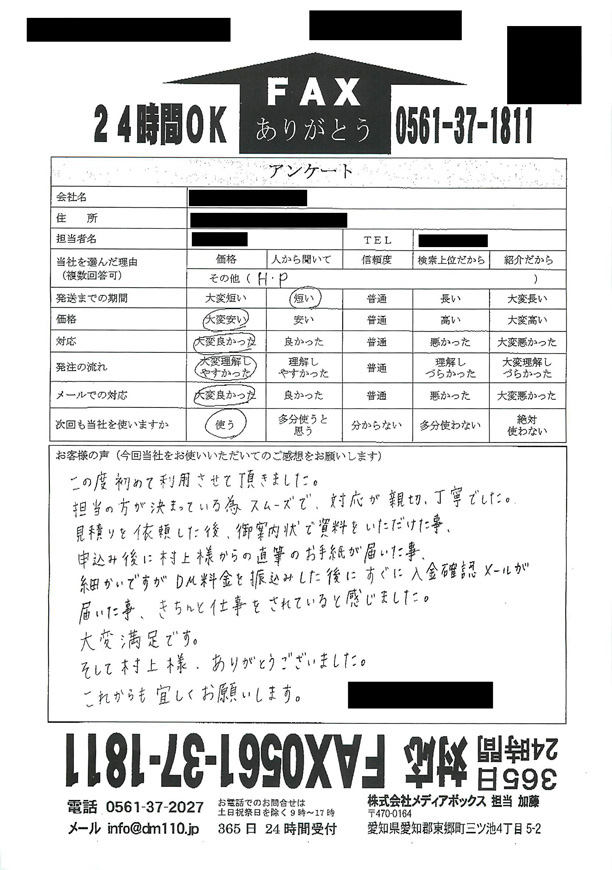 FAX
ありがとう
24時間OK
0561-37-1811
アンケート
会社名
住 所
担当者名 TEL
当社を選んだ理由 (複数回答可) 価格 人から聞いて 信頼度 検索上位だから 紹介だから
その他 ( H・P )
発送までの期間 大変短い 短い 普通 長い 大変長い
価格 大変安い 安い 普通 高い 大変高い
対応 大変良かった 良かった 普通 悪かった 大変悪かった
発注の流れ 大変理解しやすかった 理解しやすかった 普通 理解しづらかった 大変理解しづらかった
メールでの対応 大変良かった 良かった 普通 悪かった 大変悪かった
次回も当社を使いますか 使う 多分使うと思う 分からない 多分使わない 絶対使わない
お客様の声 (今回当社をお使いいただいてのご感想をお願いします)
この度初めて利用させて頂きました。
担当の方が決まっている為スムーズで、対応が親切、丁寧でした。
見積りを依頼した後、御案内状で資料をいただけた事、
申込み後に村上様からの直筆のお手紙が届いた事、
細かいですがDM料金を振込みした後にすぐに入金確認メールが
届いた事、きちんと仕事をされていると感じました。
大変満足です。
そして村上様、ありがとうございました。
これからも宜しくお願いします。
365日
24時間
対応 FAX0561-37-1811
電話 0561-37-2027
メール info@dm110.jp
お電話でのお問合せは
土日祝祭日を除く9時~17時
365日 24時間受付
株式会社メディアボックス 担当 加藤
〒470-0164
愛知県愛知郡東郷町三ツ池4丁目5-2